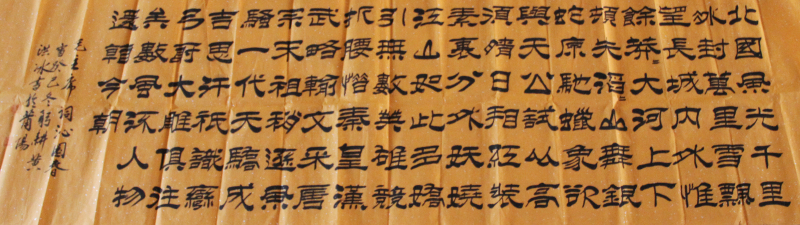 北國風光千里
冰封萬里雪飄
望長城內外惟
餘莽々大河上下
頓失滔々山舞銀
蛇原馳蠟象欲
與天公試比高
須晴日看紅裝
素裹分外妖嬈
江山如此多嬌
引無數英雄競
折腰惜秦皇漢
武略輸文采唐
宗宋祖稍遜風
騷一代天驕成
吉思汗祇識彎
弓射大雕俱往
矣數風流人物
還看今朝
毛主席詞沁園春
癸巳冬
洪冰方於莆陽